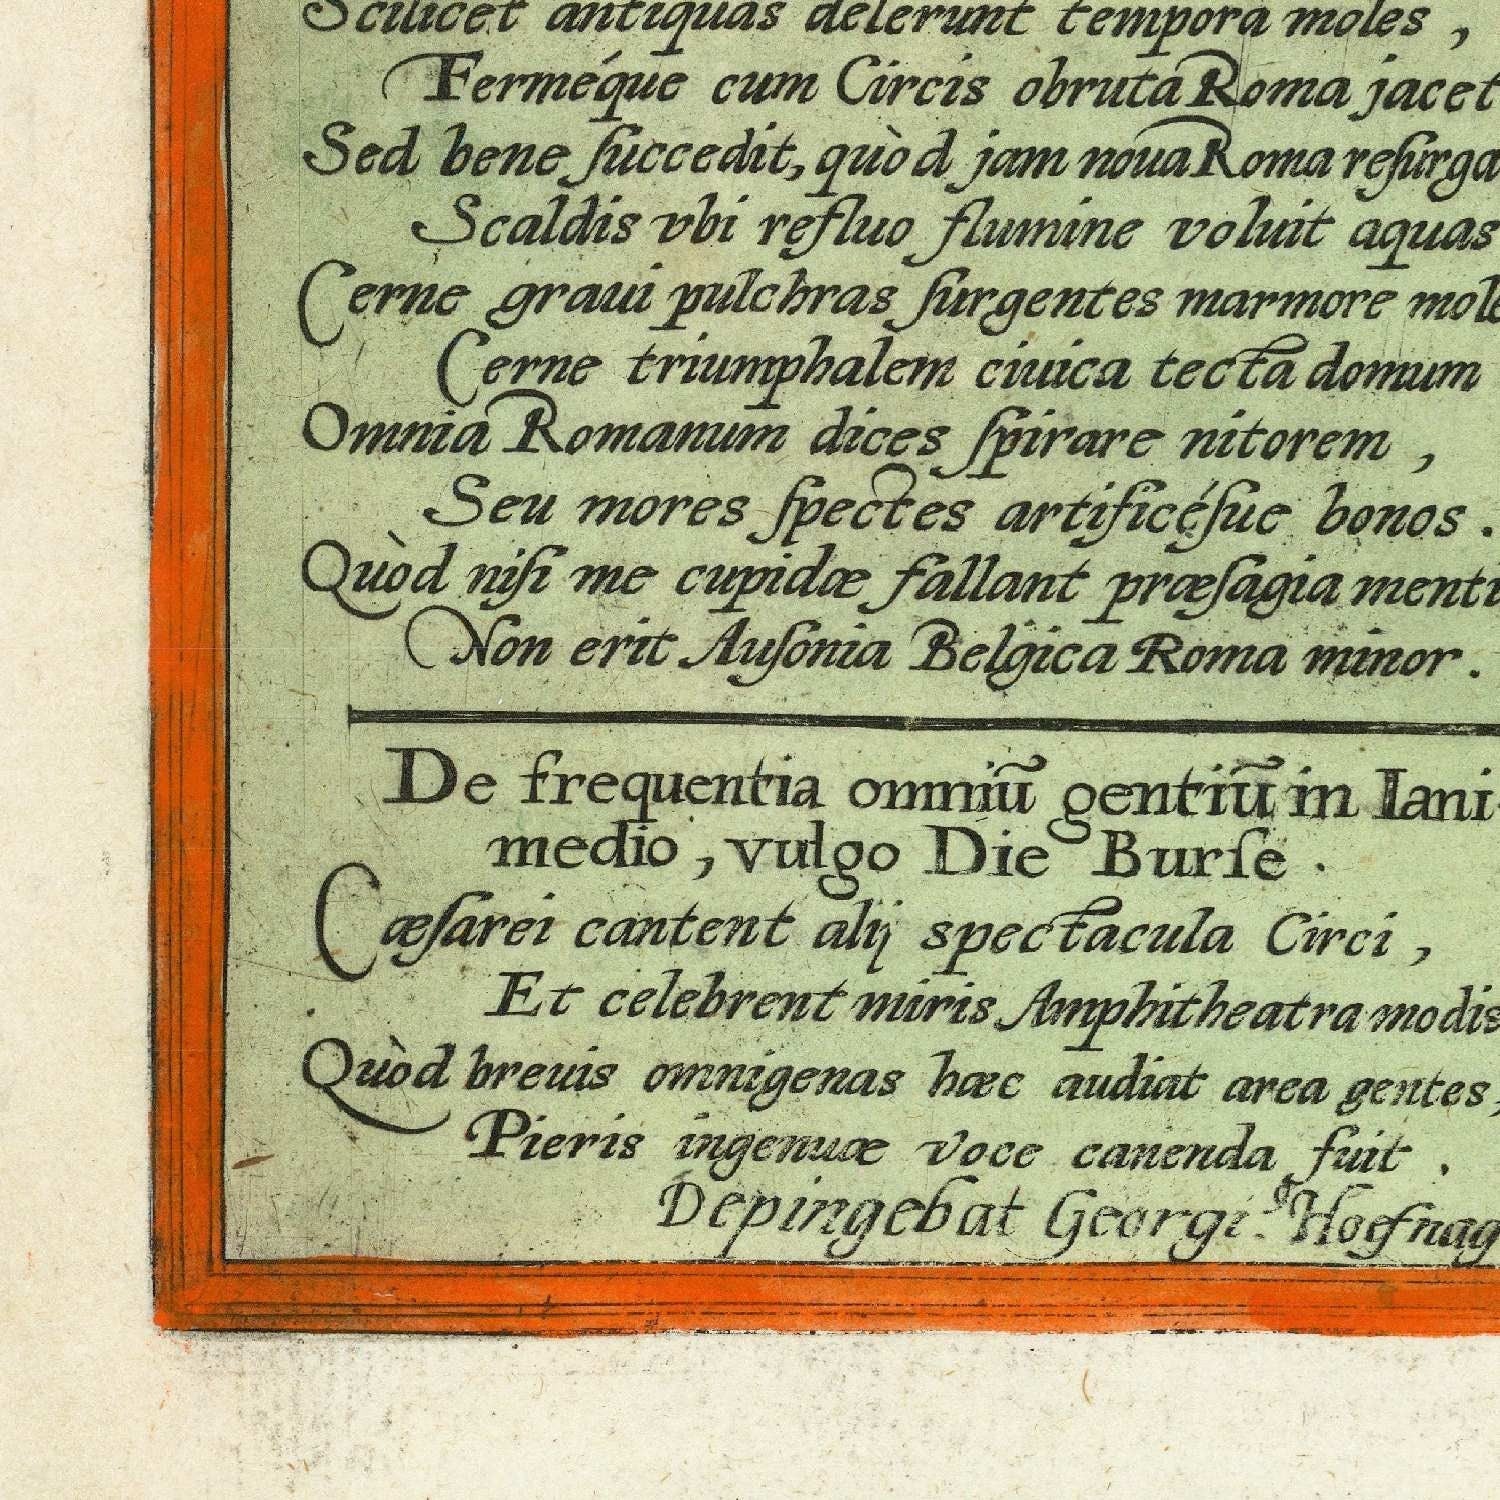 Scilicet antiquas delerunt tempora moles,
Ferméque cum Circis obruta Roma jacet
Sed bene ſuccedit, quòd jam noua Roma reſurga
Scaldis vbi refluo flumine voluit aquas
Cerne graui pulchras ſurgentes marmore mole
Cerne triumphalem ciuica tecta domum
Omnia Romanum dices ſpirare nitorem,
Seu mores ſpectes artificéſue bonos.
Quòd niſi me cupidæ fallant præſagia menti
Non erit Auſonia Belgica Roma minor.
De frequentia omniũ gentiũ in Iani-
medio, vulgo Die Burſe.
Cæſarei cantent alij spectacula Circi,
Et celebrent miris Amphitheatra modis
Quòd breuis omnigenas hæc audiat area gentes,
Pieris ingenuæ voce canenda fuit.
Depingebat Georgi9 Hoefnag